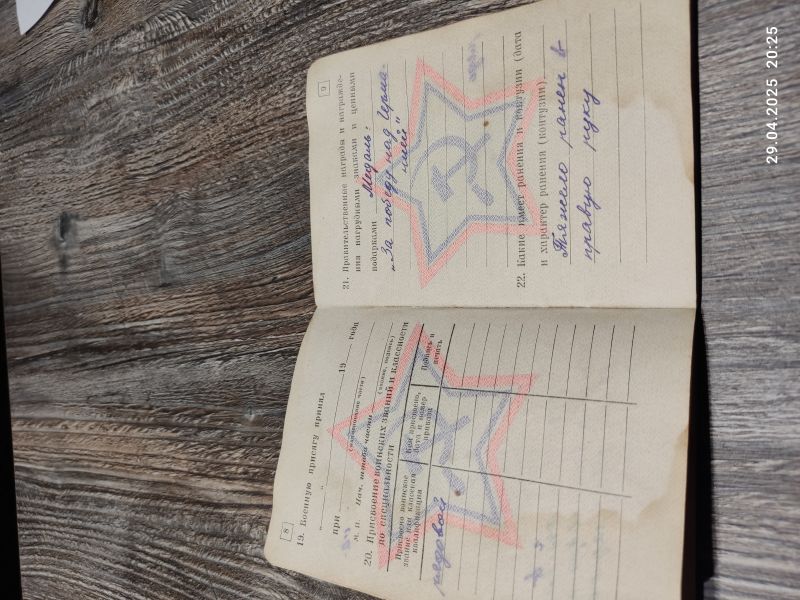 8
19. Военную присягу принял
„ “ 19 года
при
(наименование части)
М. П. Нач. штаба части
(звание, подпись)
20. Присвоение воинских званий и классности
по специальности
Присвоено воинское
звание или классная
квалификация
Кем присвоено,
дата и номер
приказа
Подпись и
печать
рядовой
9
21. Правительственные награды и награжде-
ния нагрудными знаками и ценными
подарками Медаль:
„За победу над Герма-
нией"
22. Какие имеет ранения и контузии (дата
и характер ранения (контузии)
Тяжело ранен в
правую руку
29.04.2025 20:25